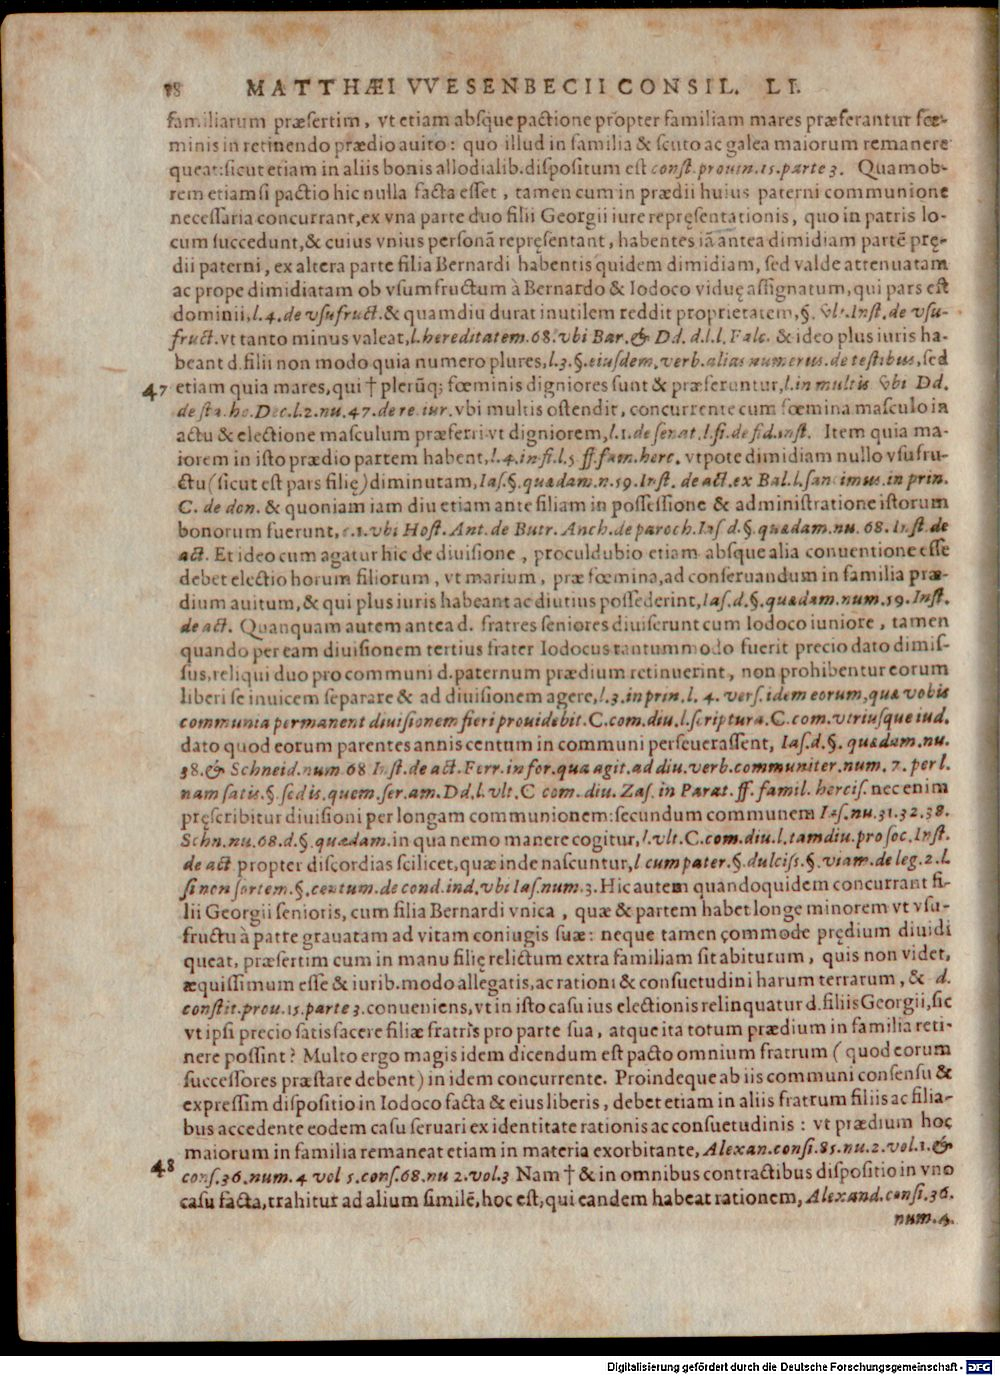 78 MATTHÆI VVESENBECII CONSIL. LI.
familiarum præsertim, vt etiam absque pactione propter familiam mares præferantur fœ-
minis in retinendo prædio auito: quo illud in familia & scuto ac galea maiorum remanere
queat: sicut etiam in aliis bonis allodialib. dispositum est const. prouin. 15. parte 3. Quamob-
rem etiamsi pactio hic nulla facta esset, tamen cum in prædii huius paterni communione
necessaria concurrant, ex vna parte duo filii Georgii iure repręsentationis, quo in patris lo-
cum succedunt, & cuius vnius personā repręsentant, habentes iā antea dimidiam partē prę-
dii paterni, ex altera parte filia Bernardi habentis quidem dimidiam, sed valde attenuatam
ac prope dimidiatam ob vsumfructum à Bernardo & Iodoco viduę assignatum, qui pars est
dominii, l. 4. de vsufruct. & quamdiu durat inutilem reddit proprietatem, §. vlt. Inst. de vsu-
fruct. vt tanto minus valeat, l. hereditatem. 68. vbi Bar. & Dd. d. l. l. Falc. & ideo plus iuris ha-
beant d. filii non modo quia numero plures, l. 3. §. eiusdem. verb. alias numerus. de testibus, sed
47 etiam quia mares, qui † plerūq; fœminis digniores sunt & præferuntur, l. in multis vbi Dd.
de sta. ho. Dec. l. 2. nu. 47. de re. iur. vbi multis ostendit, concurrente cum fœmina masculo in
actu & electione masculum præferri vt digniorem, l. 1. de senat. l. fi. de fid. inst. Item quia ma-
iorem in isto prædio partem habent, l. 4. in fi. l. 5 ff. fam. herc. vtpote dimidiam nullo vsufru-
ctu (sicut est pars filię) diminutam, Ias. §. quædam. n. 19. Inst. de act. ex Bal. l. sancimus. in prin.
C. de don. & quoniam iam diu etiam ante filiam in possessione & administratione istorum
bonorum fuerunt, c. 1. vbi Host. Ant. de Butr. Anch. de paroch. Ias d. §. quædam. nu. 68. Inst. de
act. Et ideo cum agatur hic de diuisione, proculdubio etiam absque alia conuentione esse
debet electio horum filiorum, vt marium, præ fœmina, ad conseruandum in familia præ-
dium auitum, & qui plus iuris habeant ac diutius possederint, Ias. d. §. quædam. num. 19. Inst.
de act. Quanquam autem antea d. fratres seniores diuiserunt cum Iodoco iuniore, tamen
quando per eam diuisionem tertius frater Iodocus tantummodo fuerit precio dato dimis-
sus, reliqui duo pro communi d. paternum prædium retinuerint, non prohibentur eorum
liberi se inuicem separare & ad diuisionem agere, l. 3. in prin. l. 4. vers. idem eorum, quæ vobis
communia permanent diuisionem fieri prouidebit. C. com. diu. l. scriptura. C. com. vtriusque iud.
dato quod eorum parentes annis centum in communi perseuerassent, Ias. d. §. quædam. nu.
38. & Schneid. num 68 Inst. de act. Ferr. in for. qua agit. ad diu. verb. communiter. num. 7. per l.
nam satis. §. sed is. quem. ser. am. Dd. l. vlt. C com. diu. Zas. in Parat. ff. famil. hercis. nec enim
pręscribitur diuisioni per longam communionem: secundum communem Ias. nu. 31. 32. 38.
Schn. nu. 68. d. §. quædam. in qua nemo manere cogitur, l. vlt. C. com. diu. l. tamdiu. pro soc. Inst.
de act propter discordias scilicet, quæ inde nascuntur, l cum pater. §. dulciss. §. viam. de leg. 2. l.
si non sortem. §. centum. de cond. ind. vbi Ias. num. 3. Hic autem quandoquidem concurrant fi-
lii Georgii senioris, cum filia Bernardi vnica, quæ & partem habet longe minorem vt vsu-
fructu à patre grauatam ad vitam coniugis suæ: neque tamen commode prędium diuidi
queat, præsertim cum in manu filię relictum extra familiam sit abiturum, quis non videt,
æquissimum esse & iurib. modo allegatis, ac rationi & consuetudini harum terrarum, & d.
constit. prou. 15. parte 3. conueniens, vt in isto casu ius electionis relinquatur d. filiis Georgii, sic
vt ipsi precio satisfacere filiæ fratris pro parte sua, atque ita totum prædium in familia reti-
nere possint? Multo ergo magis idem dicendum est pacto omnium fratrum (quod eorum
successores præstare debent) in idem concurrente. Proindeque ab iis communi consensu &
expressim dispositio in Iodoco facta & eius liberis, debet etiam in aliis fratrum filiis ac filia-
bus accedente eodem casu seruari ex identitate rationis ac consuetudinis: vt prædium hoc
maiorum in familia remaneat etiam in materia exorbitante, Alexan. consi. 85. nu. 2. vol. 1. &
48 cons. 36. num. 4 vol 5. cons. 68. nu 2. vol. 3 Nam † & in omnibus contractibus dispositio in vno
casu facta, trahitur ad alium similē, hoc est, qui eandem habeat rationem, Alexand. consi. 36.
num. 4.
Digitalisierung gefördert durch die Deutsche Forschungsgemeinschaft - DFG